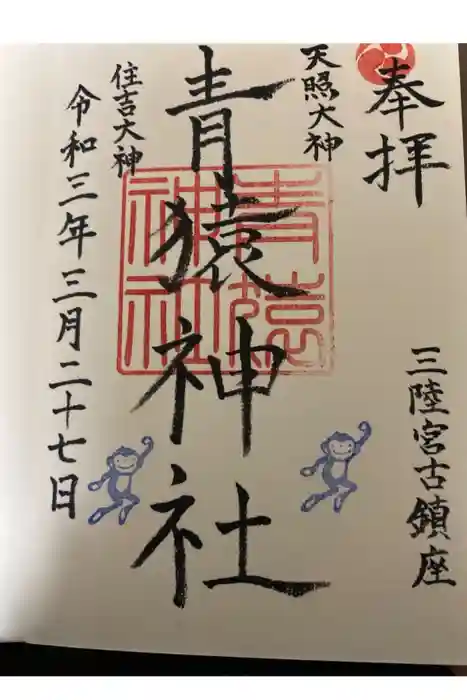 奉拝
三陸宮古鎮座
天照大神
青猿神社
住吉大神
令和三年三月二十七日
青猿
神社